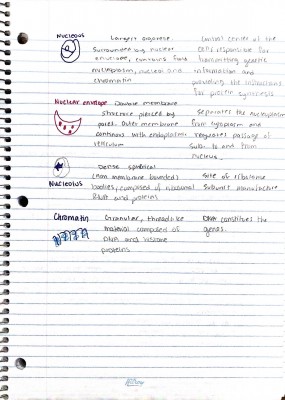 Nucleous Largest organelle Control center of the
Surrounded by nuclear cell, responsible for
envelope; contains fluid transmitting genetic
nucleoplasm, nucleoli and information and
chromatin providing the instructions
for protein synthesis
Nuclear envelope Double membrane
structure pierced by Separates the nucleoplasm
pores. Outer membrane from cytoplasm and
continuous with endoplasmic regulates passage of
reticulum to and from
nucleus.
Dense spherical
(non membrane bounded) Site of ribosome
Nucleolus bodies, composed of ribosomal subunit manufacture
RNA and proteins
Chromatin Granular, threadlike DNA constitutes the
material composed of genes.
DNA and histone
proteins